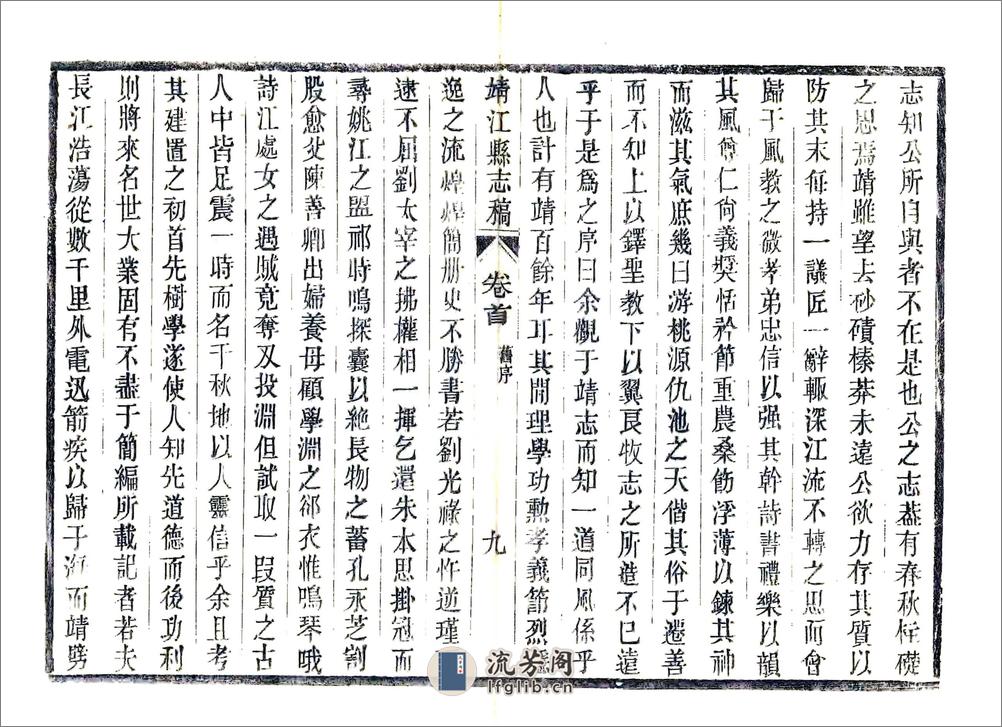 志知公所自與者不在是也公之志葢有春秋絰礎
之思焉靖雖望去砂磧榛莽未遠公欲力存其質以
防其末每持一議匠一辭輙深江流不轉之思而會
歸于風教之微孝弟忠信以强其幹詩書禮樂以韻
其風尊仁尙義奬恬矜節重農桑節浮薄以鍊其神
而滋其氣庶幾曰游桃源仇池之天偕其俗于遷善
而不知上以鐸聖教下以翼良牧志之所造不巳遠
乎于是爲之序曰余觀于靖志而知一道同風係乎
人也計有靖百餘年耳其間理學功勲孝義節烈
靖江縣志稿 卷首 舊序 九
逸之流煌煌簡册史不勝書若劉光祿之忤逆瑾
逮不屈劉太宰之拂權相一揮乞還朱本思掛冠而
尋姚江之盟祁時鳴探囊以絶長物之蓄孔永芝割
股愈父陳善卿出婦養母顧學淵之郤衣惟鳴琴哦
詩江處女之遇賊竟奪刄投淵但試取一叚質之古
人中皆足震一時而名千秋地以人靈信乎余且考
其建置之初首先樹學遂使人知先道德而後功利
則將來名世大業固有不盡于簡編所載記者若夫
長江浩蕩從數千里外電迅箭疾以歸于海而靖劈
流芳阁
lfglib.cn